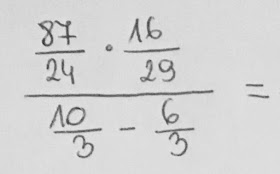 87/24 · 16/29
10/3 - 6/3 =